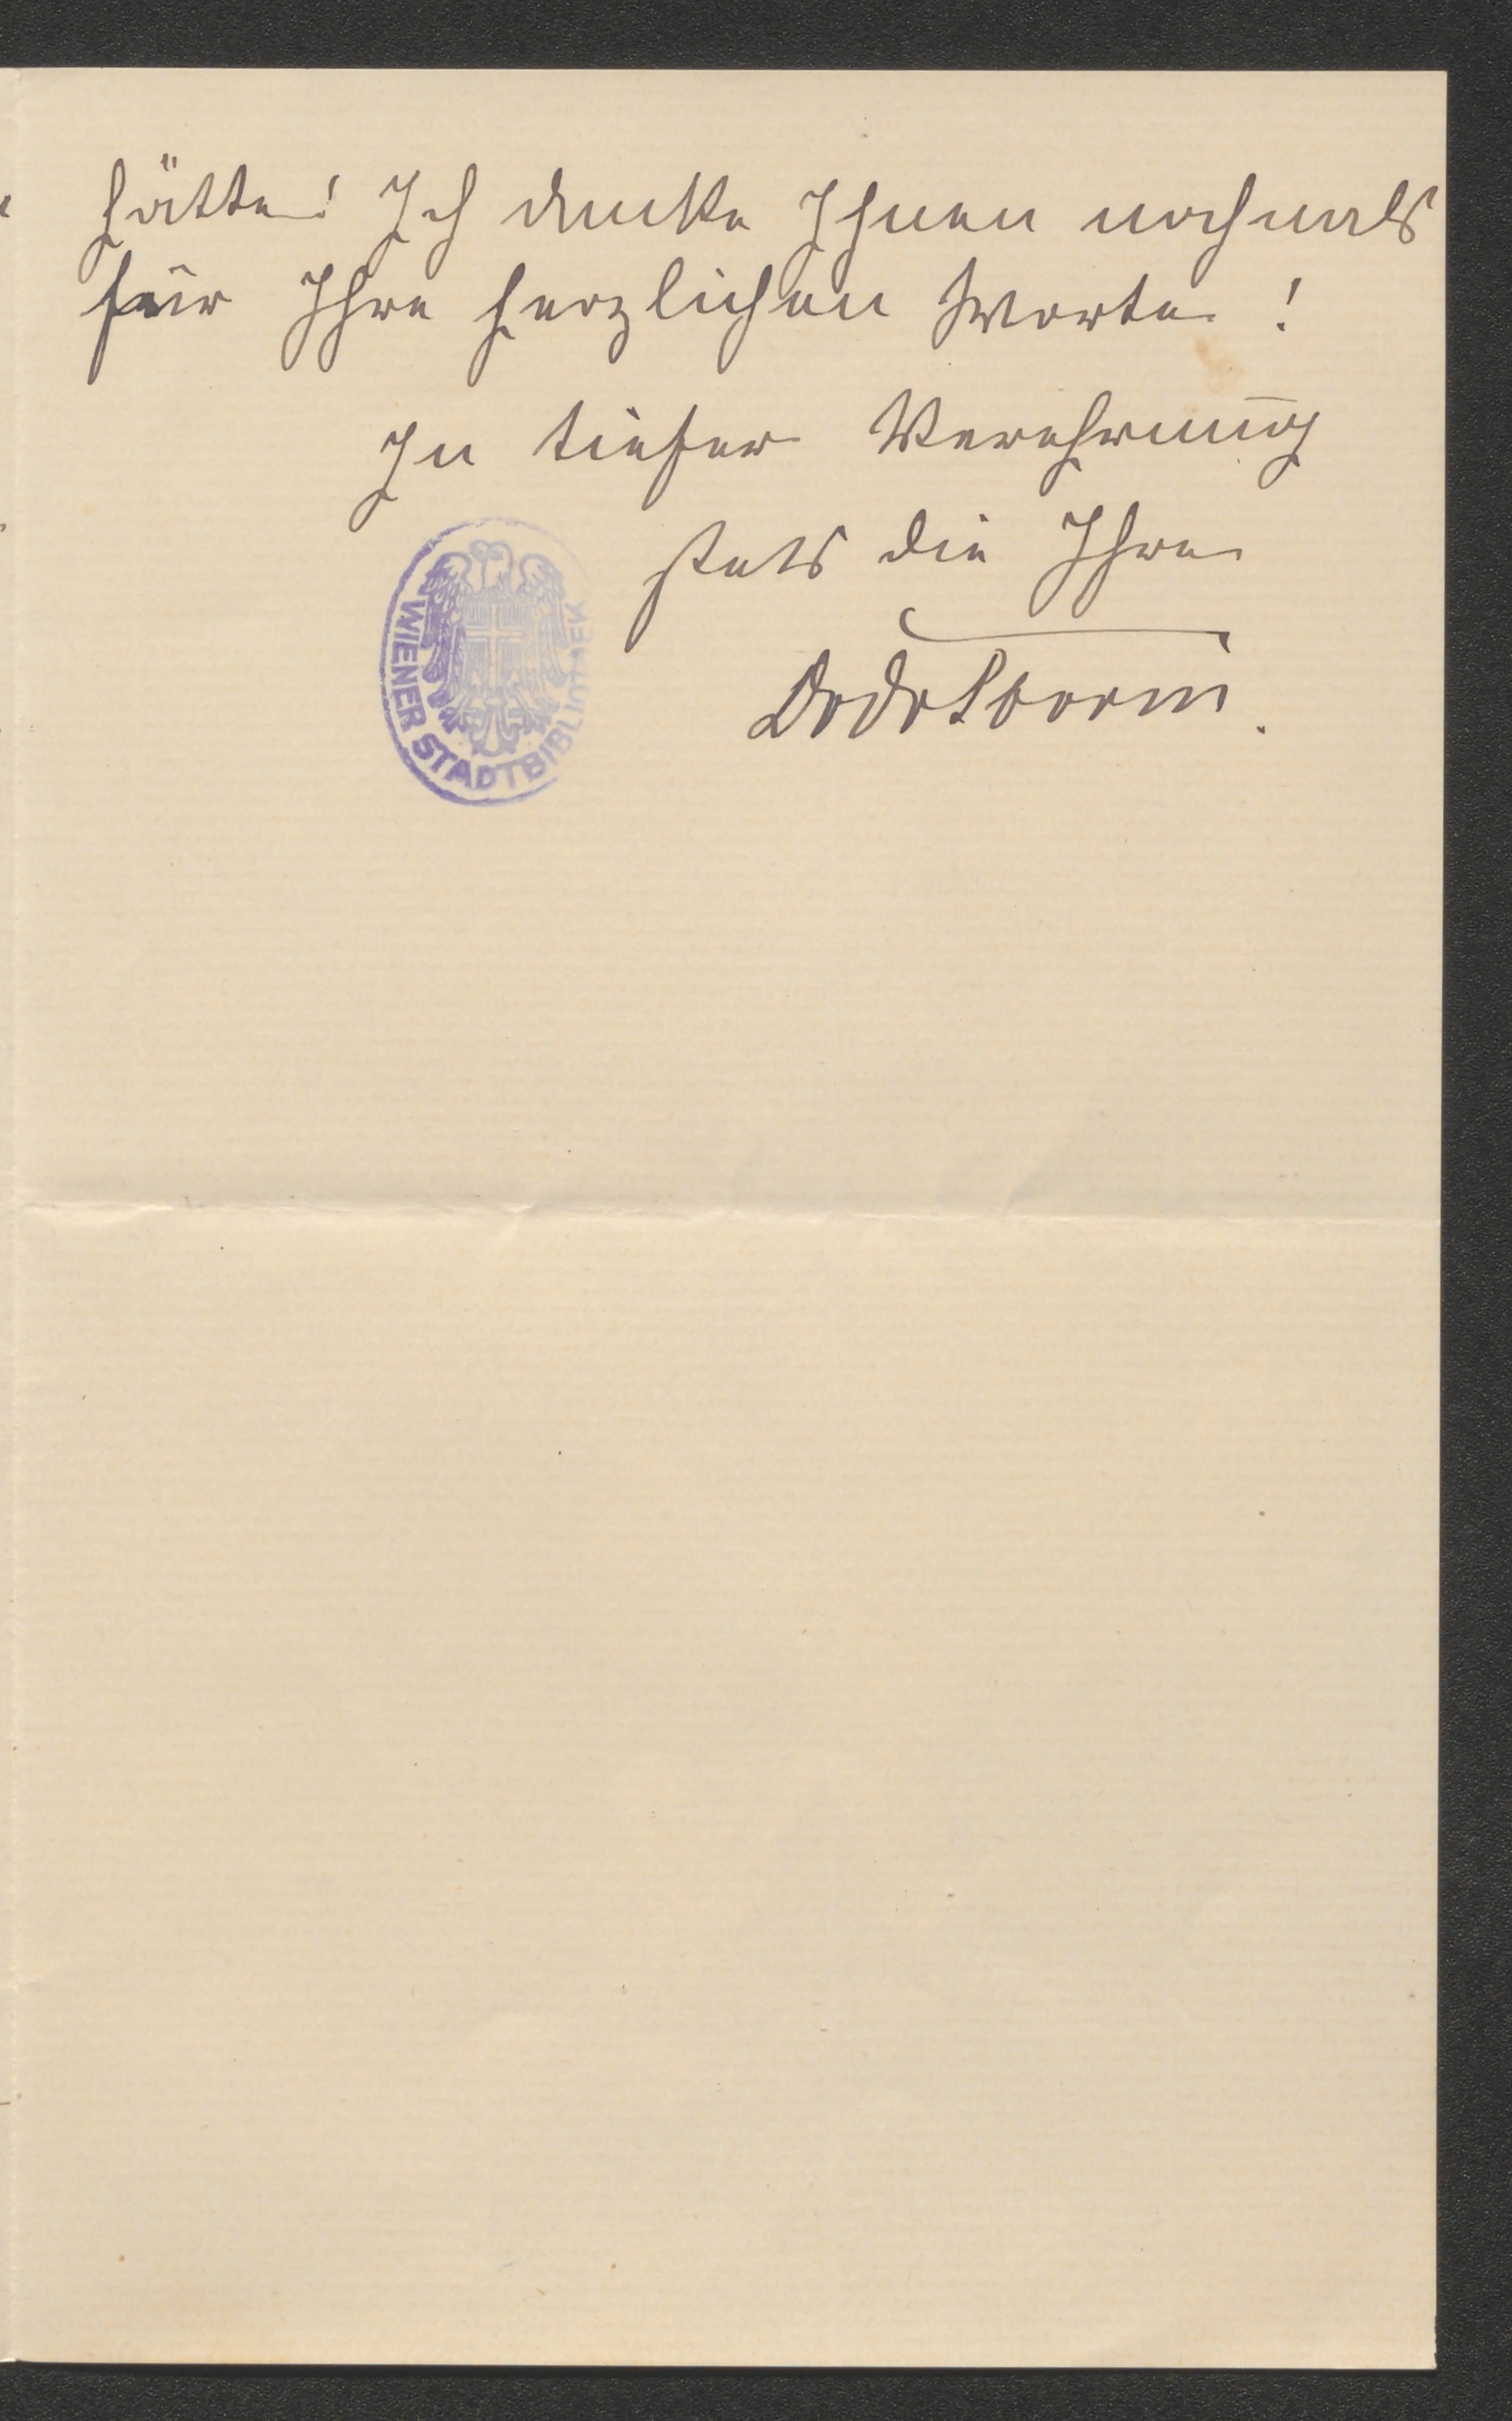 hätte! Ich danke Ihnen nochmals
für Ihre herzlichen Worte!
In tiefer Verehrung
stets die Ihre
WIENER STADTBIBLIOTHEK